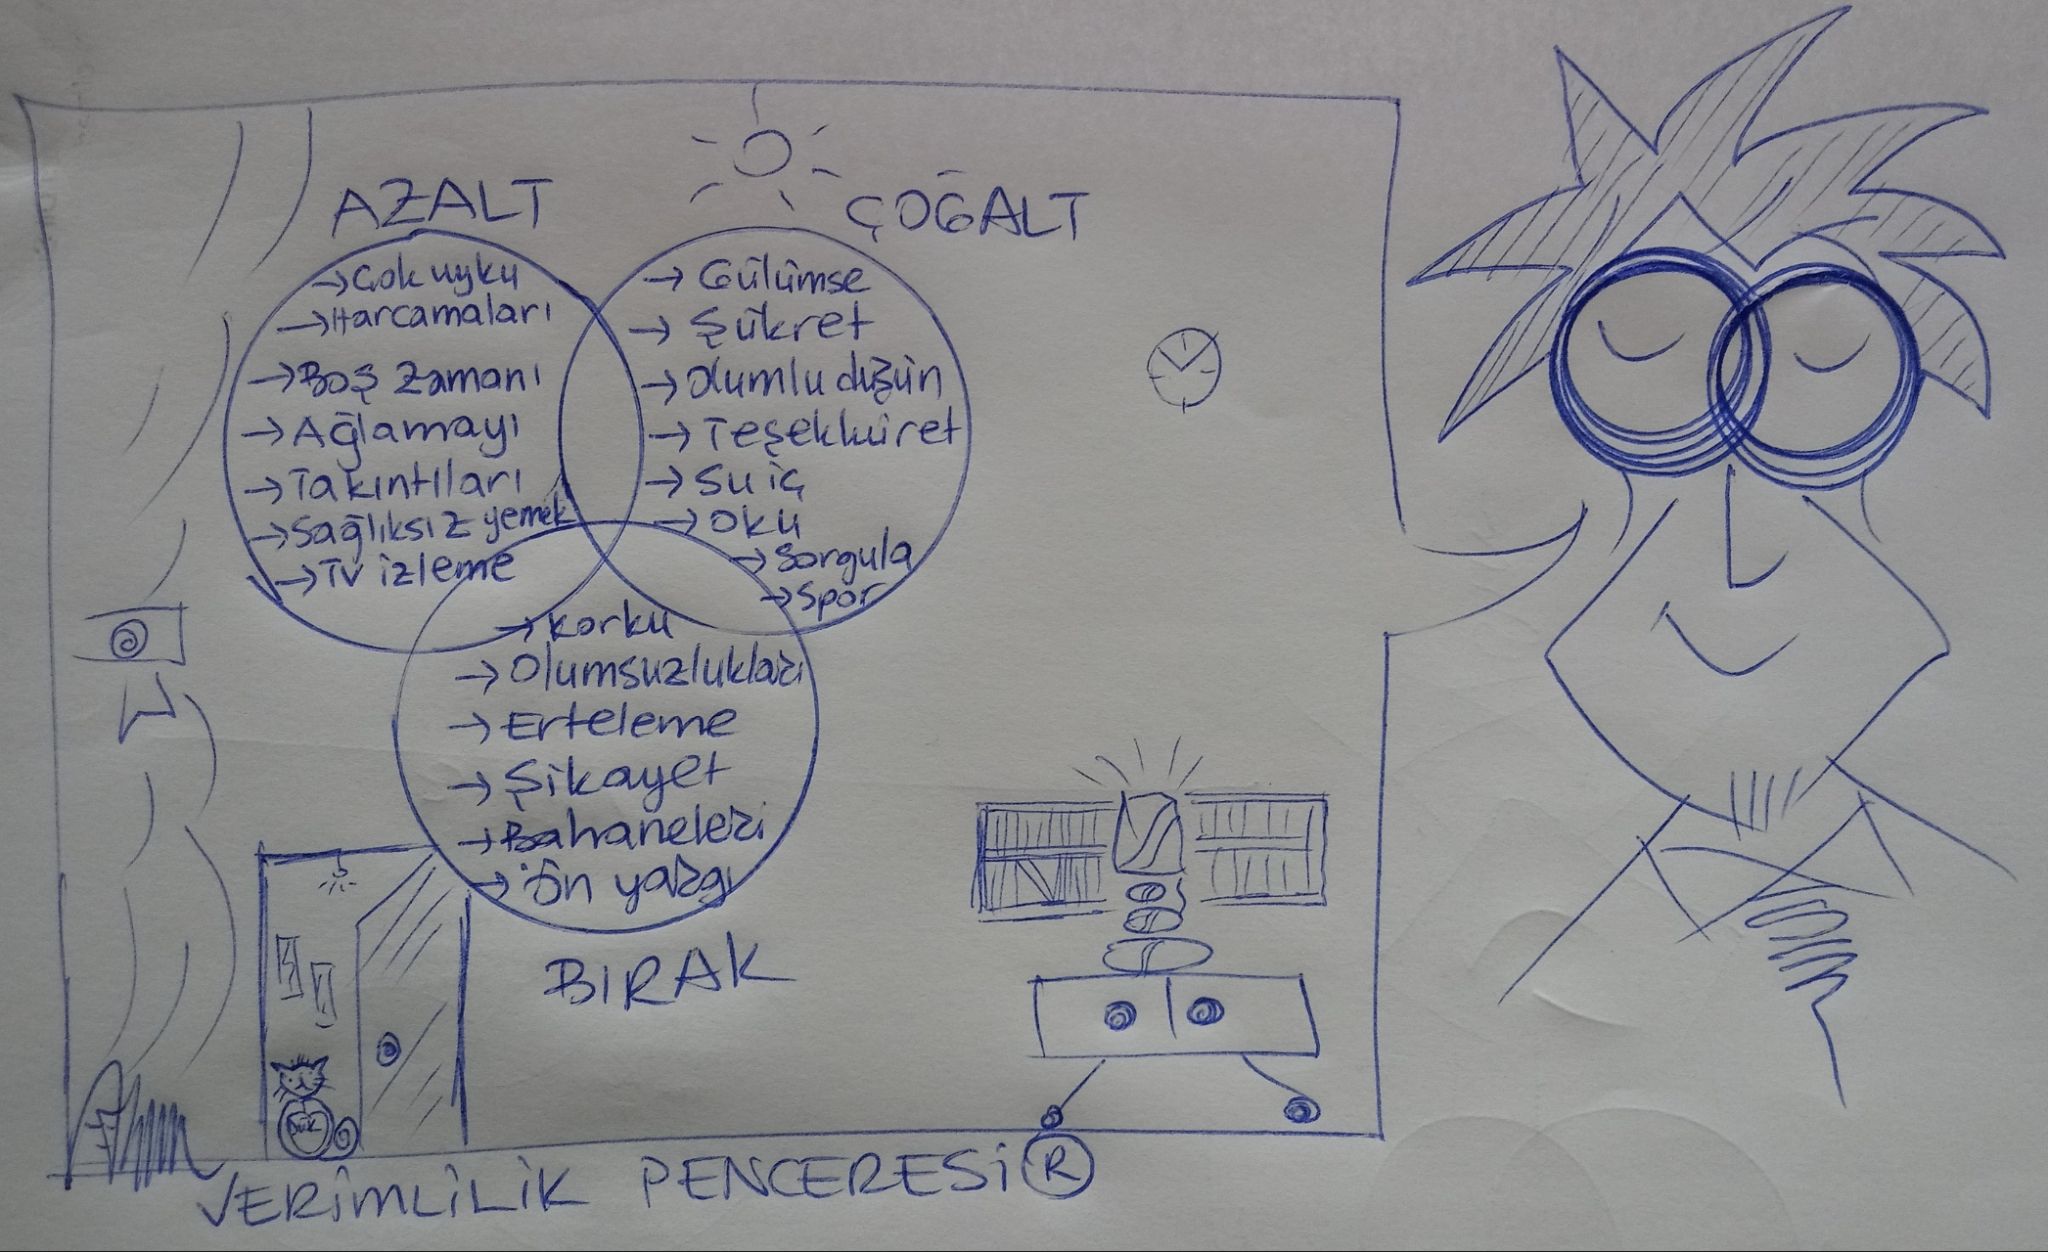 AZALT
→ Çok uyku
→ Harcamaları
→ Boş zamanı
→ Ağlamayı
→ Takıntıları
→ Sağlıksız yemek
→ Tv izleme
ÇOĞALT
→ Gülümse
→ Şükret
→ Olumlu düşün
→ Teşekkür et
→ Su iç
→ Oku
→ Sorgula
→ Spor
→ Korku
→ Olumsuzlukları
→ Erteleme
→ Şikayet
→ Bahaneleri
→ Ön yargı
BIRAK
VERİMLİLİK PENCERESİ ®